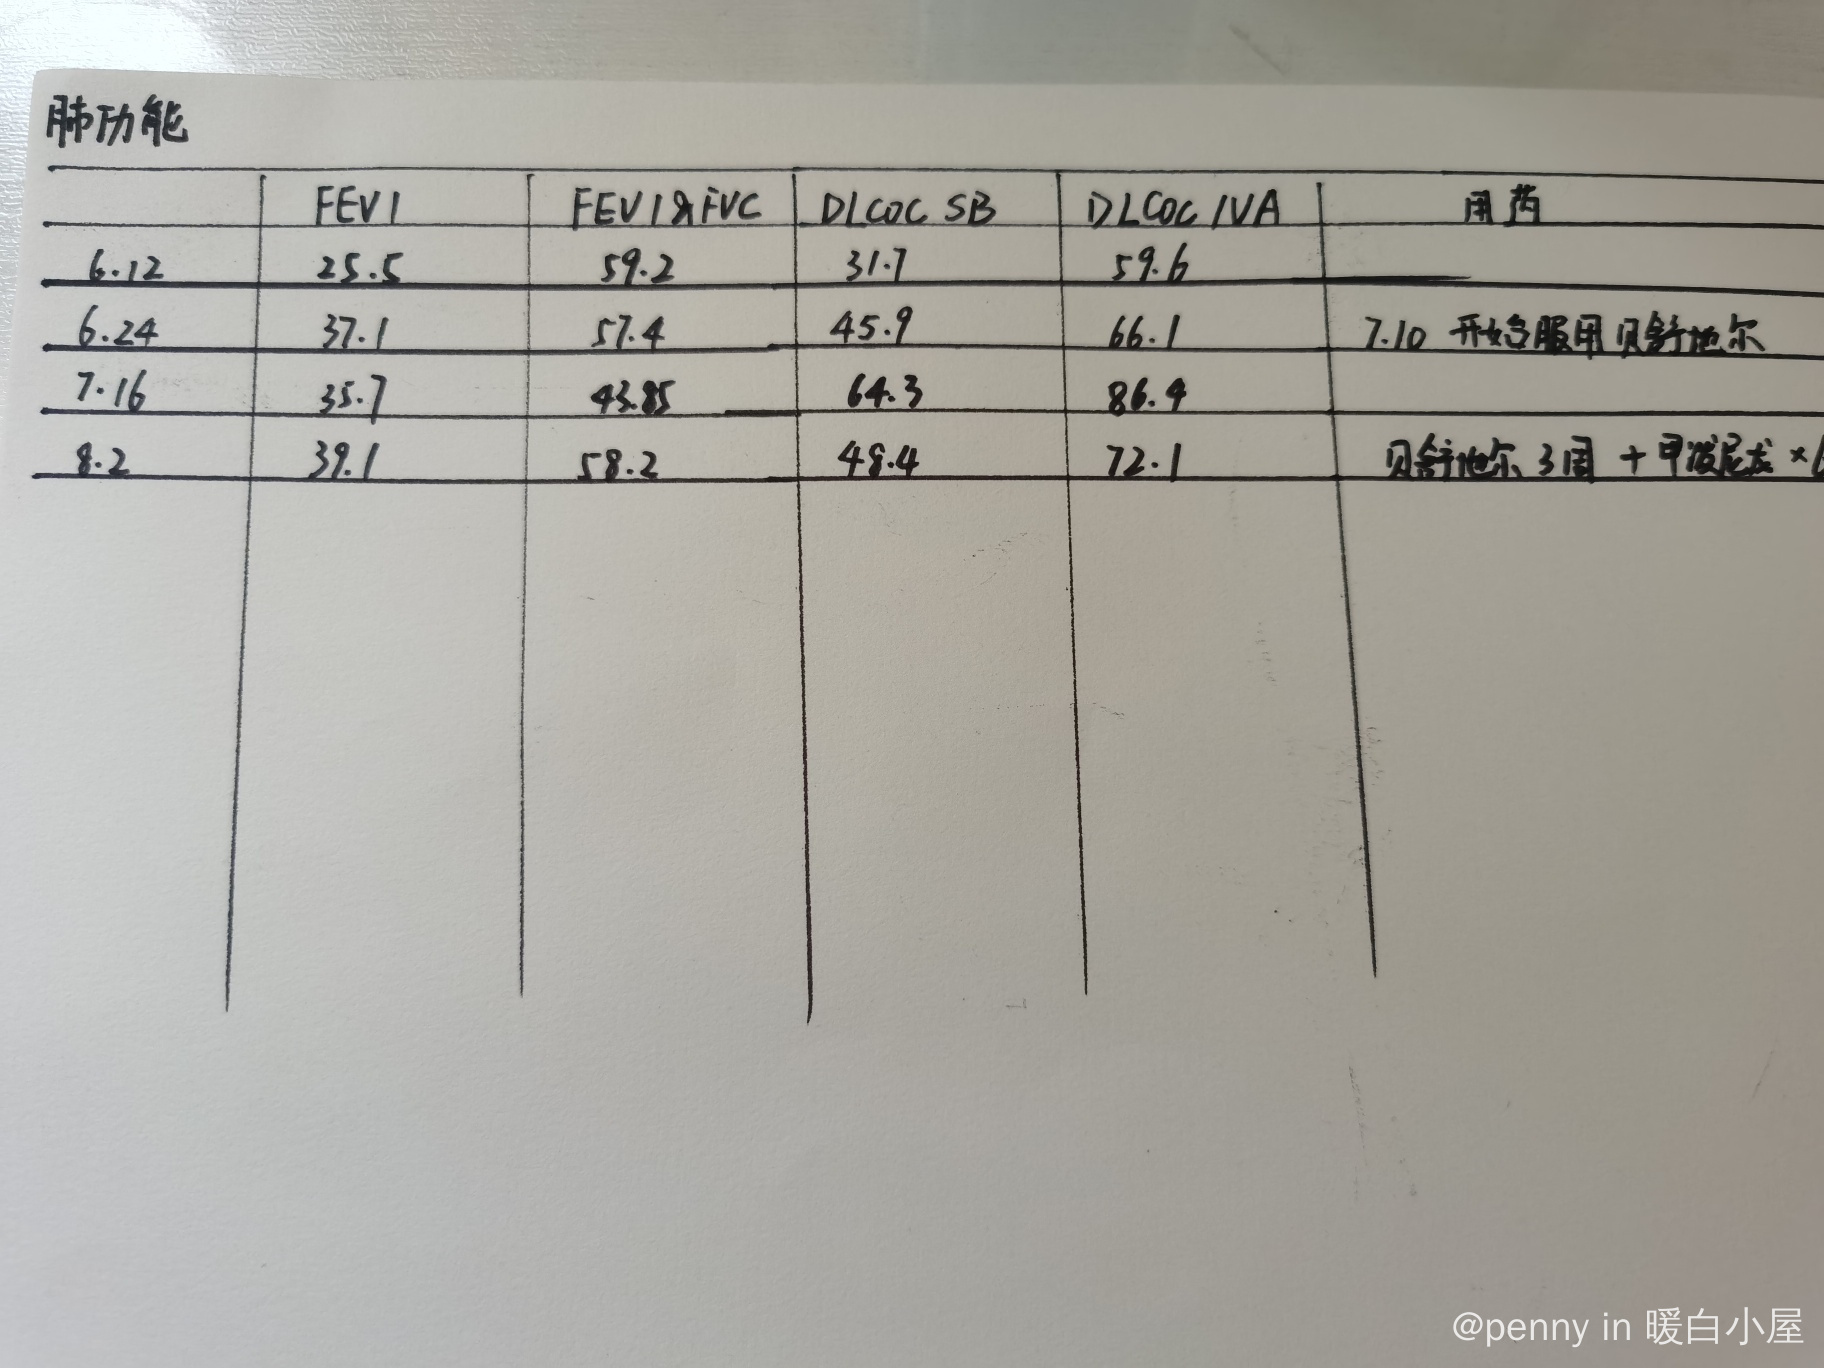 肺功能
FEV1 FEV1%FVC DLCOC SB DLCOC IVA 用药
6.12 25.5 59.2 31.7 59.6
6.24 37.1 57.4 45.9 66.1 7.10 开始服用贝舒地尔
7.16 35.7 43.85 64.3 86.4
8.2 39.1 58.2 48.4 72.1 贝舒地尔 3周 + 甲泼尼龙 ×
@penny in 暖白小屋